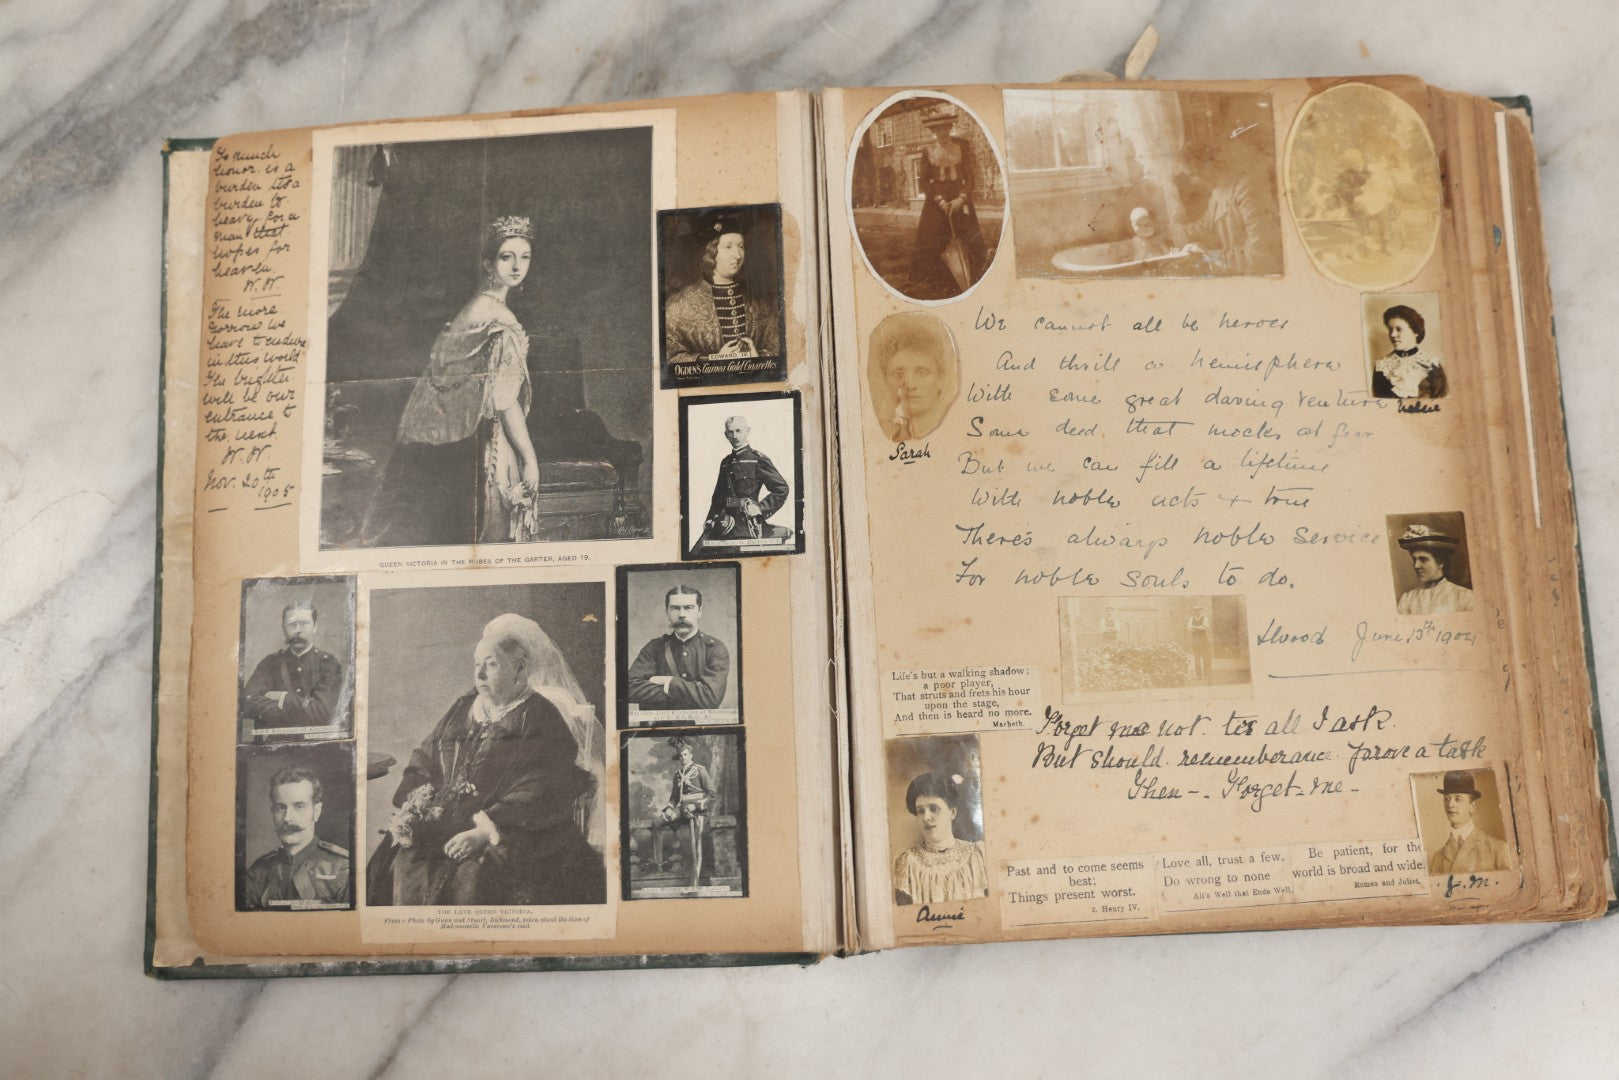 So much
honor is a
burden tis a
burden to
heavy for a
man that
hopes for
heaven.
W. W.
The more
sorrow we
have to endure
in this world
the brighter
will be our
entrance to
the next
W. W.
Nov. 20th
1905
QUEEN VICTORIA IN THE ROBES OF THE GARTER, AGED 19.
EDWARD IV
OGDEN'S Guinea Gold Cigarettes
THE LATE QUEEN VICTORIA.
From a Photo by Gunn and Stuart, Richmond, taken about the time of
Mademoiselle Vacaresco's visit.
Sarah
We cannot all be heroes
And thrill a hemisphere
With some great daring venture
Some deed that mocks at fear
But we can fill a lifetime
With noble acts + true
There's always noble Service
For noble Souls to do.
Nellie
June 13th 1904
Life's but a walking shadow:
a poor player,
That struts and frets his hour
upon the stage,
And then is heard no more.
Macbeth.
Forget me not. tis all I ask.
But should remembrance prove a task
Then - . Forget - me -
Annie
Past and to come seems
best;
Things present worst.
2. Henry IV.
Love all, trust a few,
Do wrong to none
All's Well that Ends Well.
Be patient, for the
world is broad and wide.
Romeo and Juliet.
J. M.